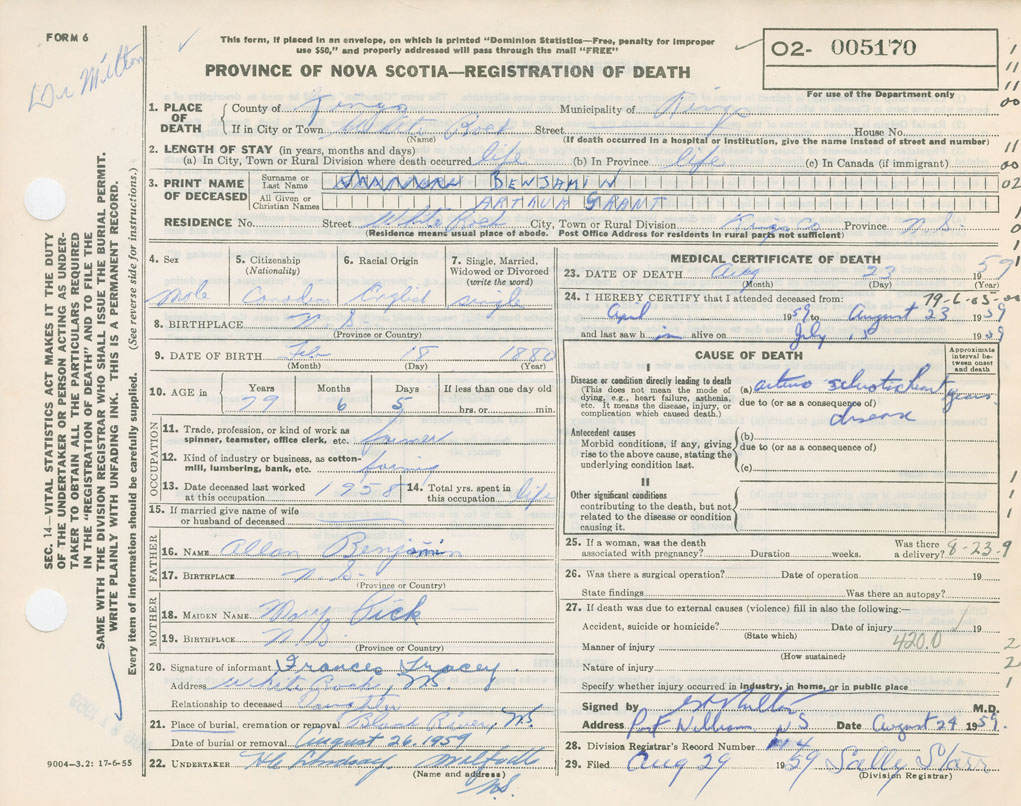 FORM 6
Dr Milton
This form, if placed in an envelope, on which is printed "Dominion Statistics—Free, penalty for improper
use $50," and properly addressed will pass through the mail "FREE"
02- 005170
For use of the Department only
PROVINCE OF NOVA SCOTIA—REGISTRATION OF DEATH
1. PLACE OF DEATH County of Kings Municipality of Kings
If in City or Town White Rock Street House No.
(Name) (If death occurred in a hospital or Institution, give the name instead of street and number)
2. LENGTH OF STAY (in years, months and days)
(a) In City, Town or Rural Division where death occurred life (b) In Province life (c) In Canada (if immigrant)
3. PRINT NAME OF DECEASED Surname or Last Name BENJAMIN
All Given or Christian Names ARTHUR GRANT
RESIDENCE No. Street White Rock City, Town or Rural Division Kings Co Province N.S.
(Residence means usual place of abode. Post Office Address for residents in rural parts not sufficient)
SEC. 14—VITAL STATISTICS ACT MAKES IT THE DUTY
OF THE UNDERTAKER OR PERSON ACTING AS UNDER-
TAKER TO OBTAIN ALL THE PARTICULARS REQUIRED
IN THE "REGISTRATION OF DEATH" AND TO FILE THE
SAME WITH THE DIVISION REGISTRAR WHO SHALL ISSUE THE BURIAL PERMIT.
WRITE PLAINLY WITH UNFADING INK. THIS IS A PERMANENT RECORD.
Every item of information should be carefully supplied. (See reverse side for instructions.)
4. Sex Male
5. Citizenship (Nationality) Canadian
6. Racial Origin English
7. Single, Married, Widowed or Divorced (write the word) single
8. BIRTHPLACE N.S.
(Province or Country)
9. DATE OF BIRTH Feb 18 1880
(Month) (Day) (Year)
10. AGE in Years Months Days If less than one day old
79 6 5 hrs. or min.
OCCUPATION
11. Trade, profession, or kind of work as
spinner, teamster, office clerk, etc. farmer
12. Kind of industry or business, as cotton-
mill, lumbering, bank, etc. farming
13. Date deceased last worked
at this occupation 1958
14. Total yrs. spent in
this occupation life
15. If married give name of wife
or husband of deceased
FATHER
16. NAME Allan Benjamin
17. BIRTHPLACE N.S.
(Province or Country)
MOTHER
18. MAIDEN NAME Mary Pick
19. BIRTHPLACE N.S.
(Province or Country)
20. Signature of informant Frances Tracey
Address White Rock, N.S.
Relationship to deceased Daughter
21. Place of burial, cremation or removal Black River, N.S.
Date of burial or removal August 26, 1959
22. UNDERTAKER H.C. Lindsay Wolfville
(Name and address) N.S.
9004—3.2: 17-6-55
MEDICAL CERTIFICATE OF DEATH
23. DATE OF DEATH Aug 23 1959
(Month) (Day) (Year)
79-6-05-00
24. I HEREBY CERTIFY that I attended deceased from:
April 1959 to August 23 1959
and last saw him alive on July 15 1959
CAUSE OF DEATH
Approximate interval between onset and death
I
Disease or condition directly leading to death
(This does not mean the mode of
dying, e.g., heart failure, asthenia,
etc. It means the disease, injury, or
complication which caused death.)
(a) arterio sclerotic heart years
due to (or as a consequence of)
disease
Antecedent causes
Morbid conditions, if any, giving
rise to the above cause, stating the
underlying condition last.
(b)
due to (or as a consequence of)
(c)
II
Other significant conditions
contributing to the death, but not
related to the disease or condition
causing it.
25. If a woman, was the death
associated with pregnancy? Duration weeks. Was there
a delivery? 8-23-9
26. Was there a surgical operation? Date of operation 19
State findings Was there an autopsy?
27. If death was due to external causes (violence) fill in also the following:—
Accident, suicide or homicide? Date of injury 19
(State which)
Manner of injury 420.0
(How sustained)
Nature of injury
Specify whether injury occurred in industry, in home, or in public place
Signed by M.D.
Address Port Williams N.S Date August 29 1959.
28. Division Registrar's Record Number
29. Filed Aug 29 1959 Sally Starr
(Division Registrar)